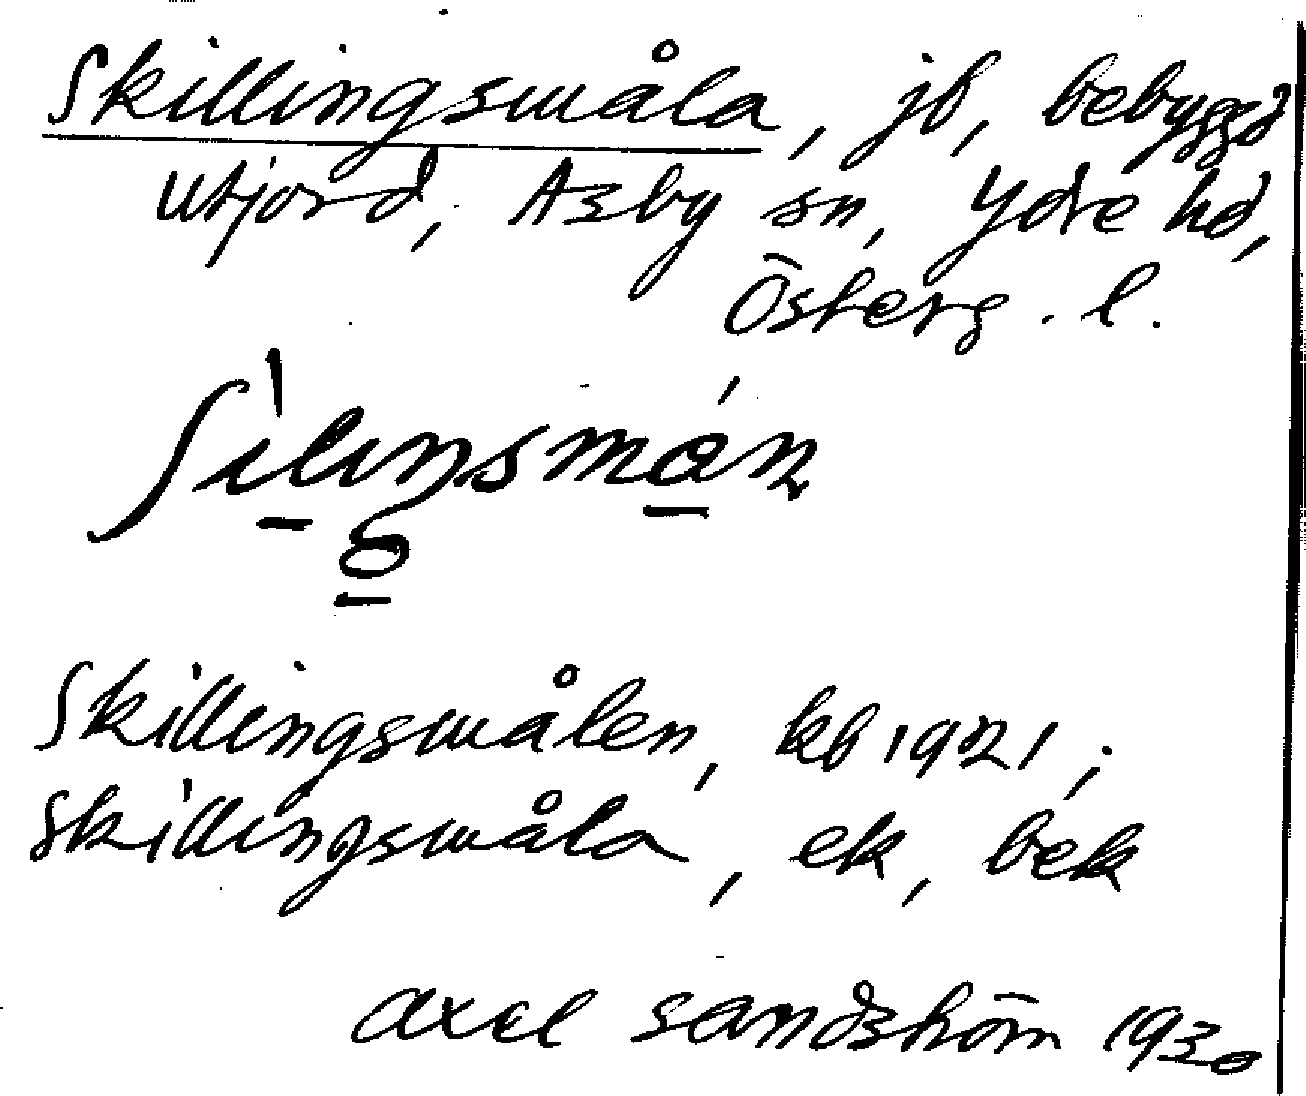 Skillingsmåla, jb, bebyggd
utjord, Asby sn, Ydre hd,
Österg. l.
Skillingsmålen, kb 1921;
Skillingsmåla, ek, bek
Axel Sandström 1930